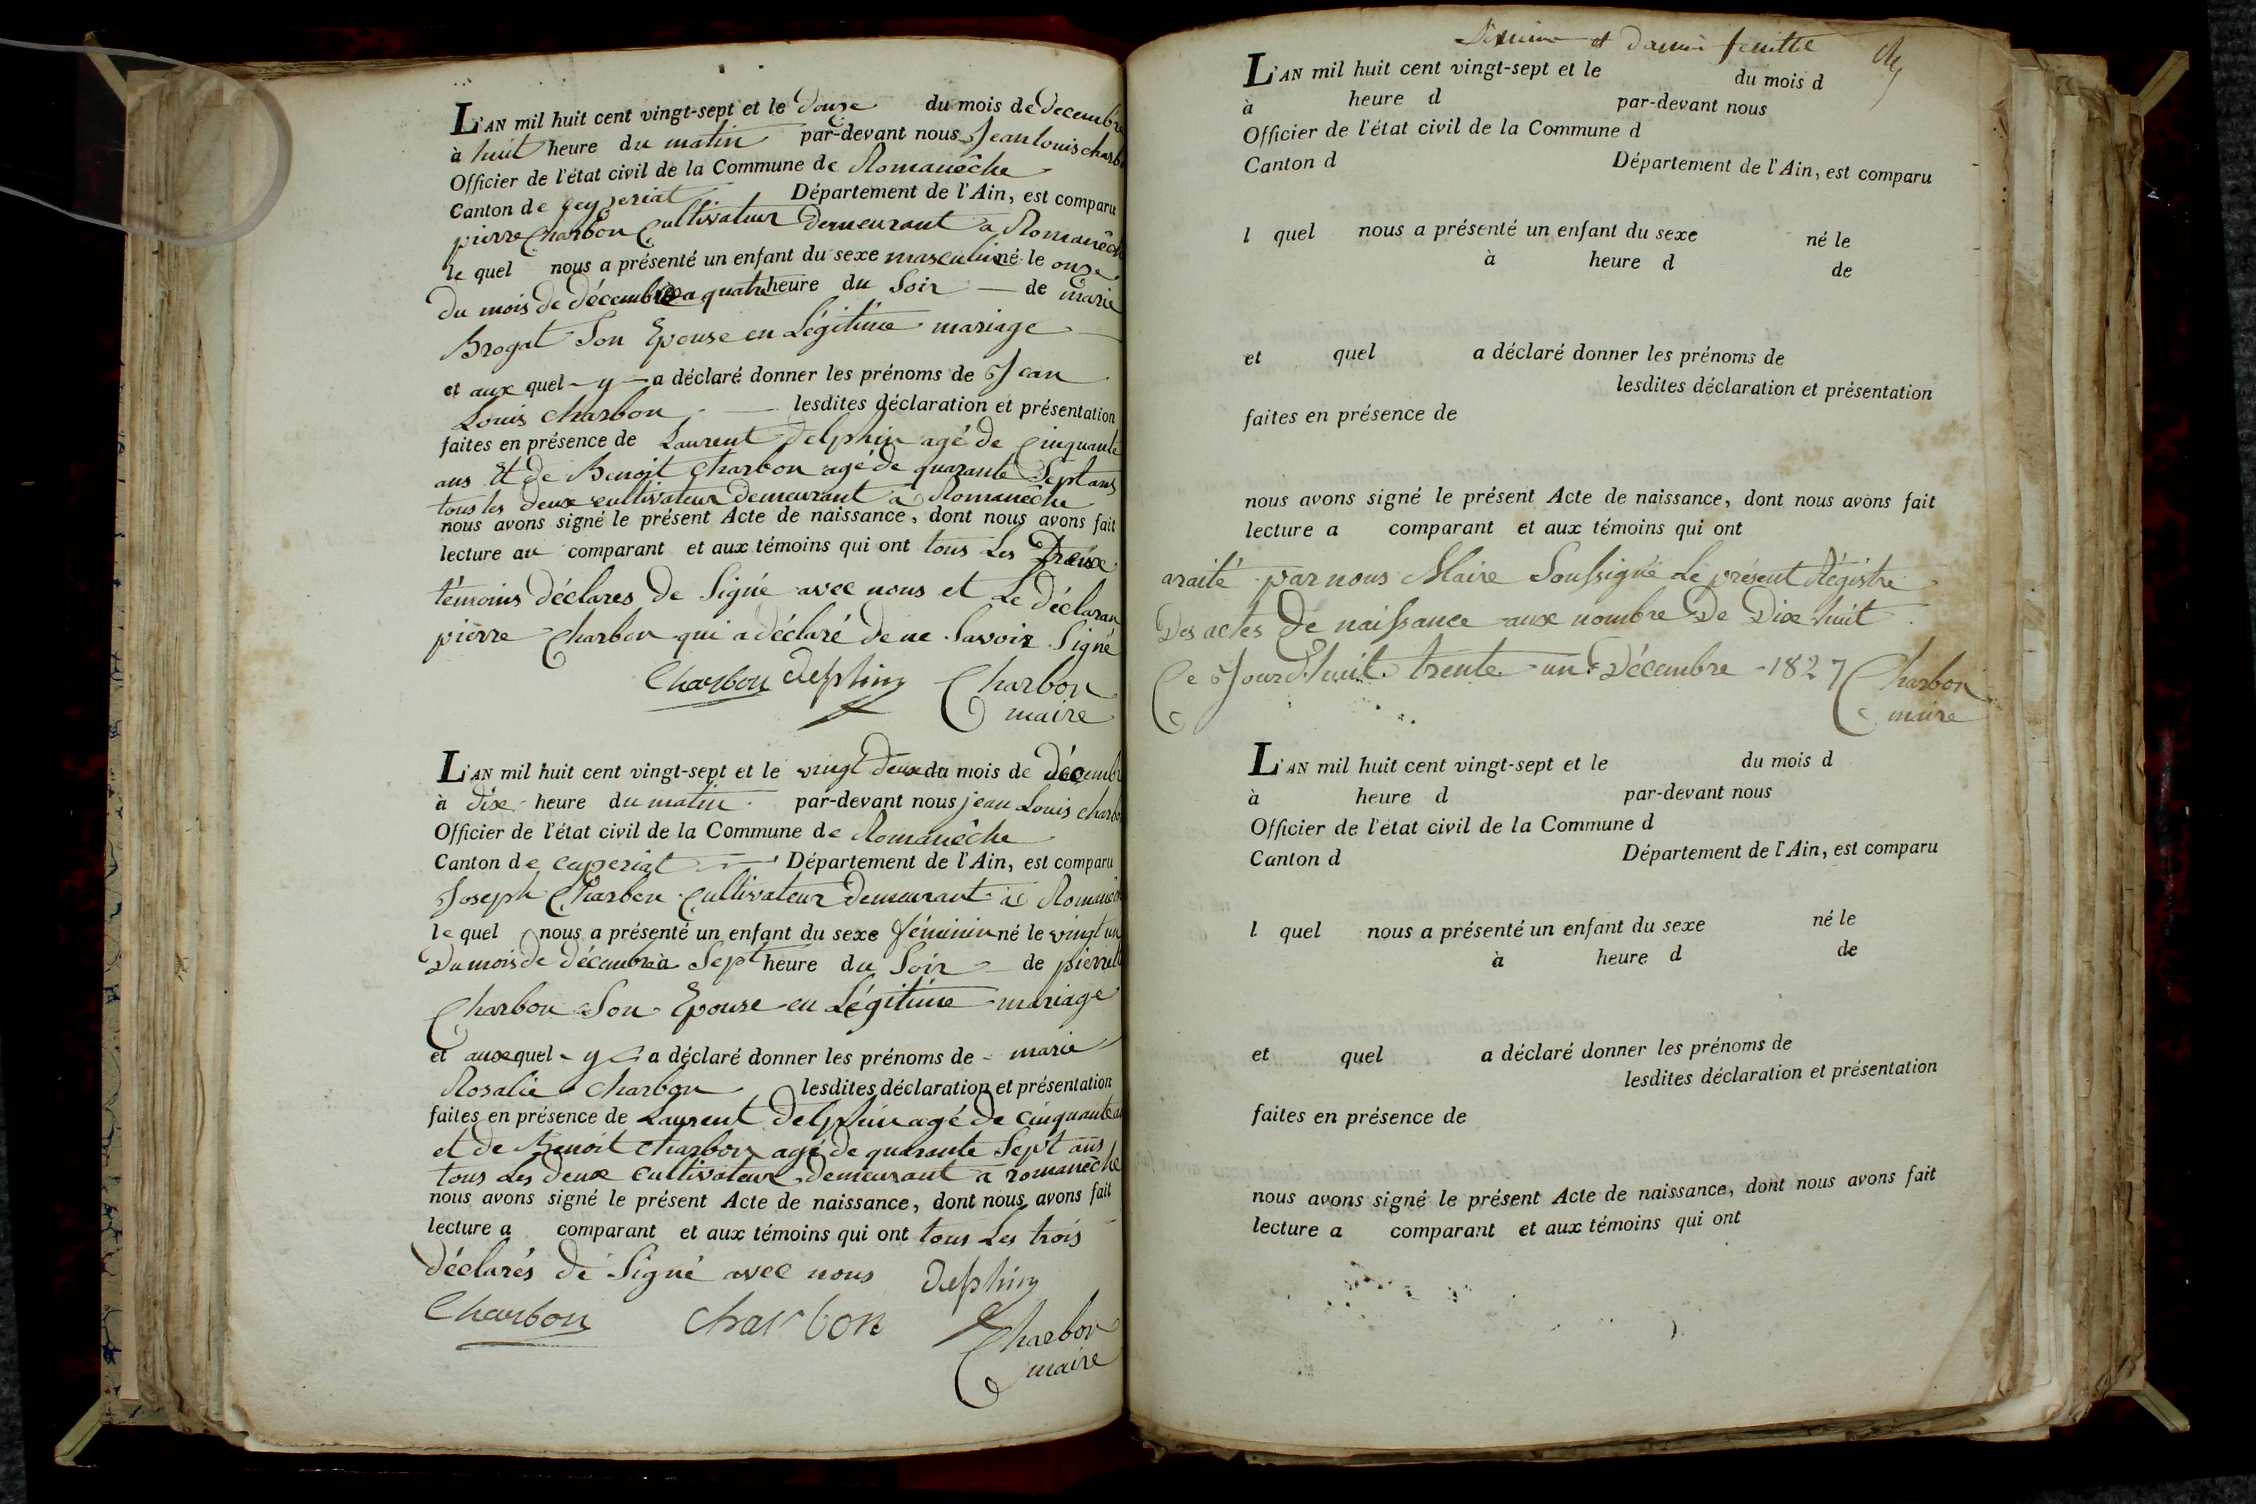 L'AN mil huit cent vingt-sept et le douze du mois de decembre
à huit heure du matin par-devant nous Jean louis charbon
Officier de l'état civil de la Commune de Romanêche
Canton de ceyzeriat Département de l'Ain, est comparu
pierre Charbon Cultivateur demeurant a Romanêche
le quel nous a présenté un enfant du sexe masculin né le onze
du mois de décembre a quatre heure du Soir de marie
Brogat Son Epouse en Légitime mariage
et aux quel - y - a déclaré donner les prénoms de Jean
Louis Charbon lesdites déclaration et présentation
faites en présence de Laurent Delphin agé de Cinquante
ans Et de Benoit Charbon agé de quarante Sept ans
tous les deux cultivateur demeurant a Romanêche
nous avons signé le présent Acte de naissance, dont nous avons fait
lecture au comparant et aux témoins qui ont tous Les Deux
témoins déclares de Signé avec nous et Le déclaran
pierre Charbon qui a déclaré de ne Savoir Signé
Charbon delphin Charbon
maire
L'AN mil huit cent vingt-sept et le vingt deux du mois de décembr
à dix heure du matin par-devant nous jean Louis charbo
Officier de l'état civil de la Commune de Romanêche
Canton de ceyzeriat Département de l'Ain, est comparu
Joseph Charbon Cultivateur demeurant a Romanêch
le quel nous a présenté un enfant du sexe féminin né le vingt un
Du mois de décembre à Sept heure du Soir de pierrett
Charbon Son Epouse en Légitime mariage
et aux quel - y - a déclaré donner les prénoms de - marie
Rosalie Charbon lesdites déclaration et présentation
faites en présence de Laurent Delphin agé de cinquante a
et de Benoit Charbon agé de quarante Sept ans
tous Les deux cultivateur demeurant a romanêche
nous avons signé le présent Acte de naissance, dont nous avons fait
lecture a comparant et aux témoins qui ont tous Les trois
déclarés de Signé avec nous delphin
Charbon charbon Charbon
maire
et feuille
L'AN mil huit cent vingt-sept et le du mois d
à heure d par-devant nous
Officier de l'état civil de la Commune d
Canton d Département de l'Ain, est comparu
l quel nous a présenté un enfant du sexe né le
à heure d de
et quel a déclaré donner les prénoms de
lesdites déclaration et présentation
faites en présence de
nous avons signé le présent Acte de naissance, dont nous avons fait
lecture a comparant et aux témoins qui ont
araité par nous Maire Soussigné Le présent Régistre
Des actes de naissance aux nombre De Dix huit
Ce Jourd'huit trente un Décembre 1827 Charbon
maire
L'AN mil huit cent vingt-sept et le du mois d
à heure d par-devant nous
Officier de l'état civil de la Commune d
Canton d Département de l'Ain, est comparu
l quel nous a présenté un enfant du sexe né le
à heure d de
et quel a déclaré donner les prénoms de
lesdites déclaration et présentation
faites en présence de
nous avons signé le présent Acte de naissance, dont nous avons fait
lecture a comparant et aux témoins qui ont